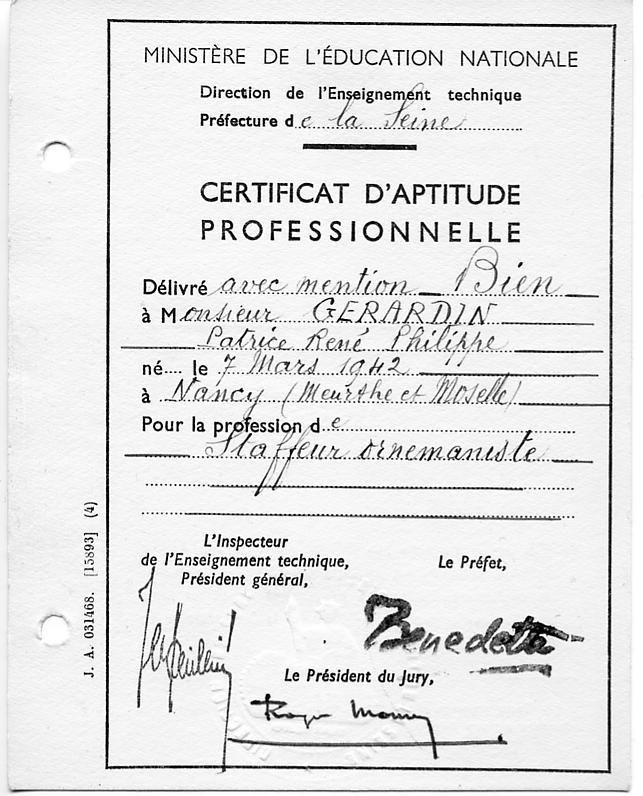 MINISTÈRE DE L'ÉDUCATION NATIONALE
Direction de l'Enseignement technique
Préfecture de la Seine
CERTIFICAT D'APTITUDE
PROFESSIONNELLE
Délivré avec mention Bien
à Monsieur GERARDIN
Patrice René Philippe
né le 7 Mars 1942
à Nancy (Meurthe et Moselle)
Pour la profession de
Staffeur ornemaniste
L'Inspecteur
de l'Enseignement technique,
Président général,
Le Préfet,
Benedetti
Le Président du Jury,
Roger
J. A. 031468. [15893] (4)